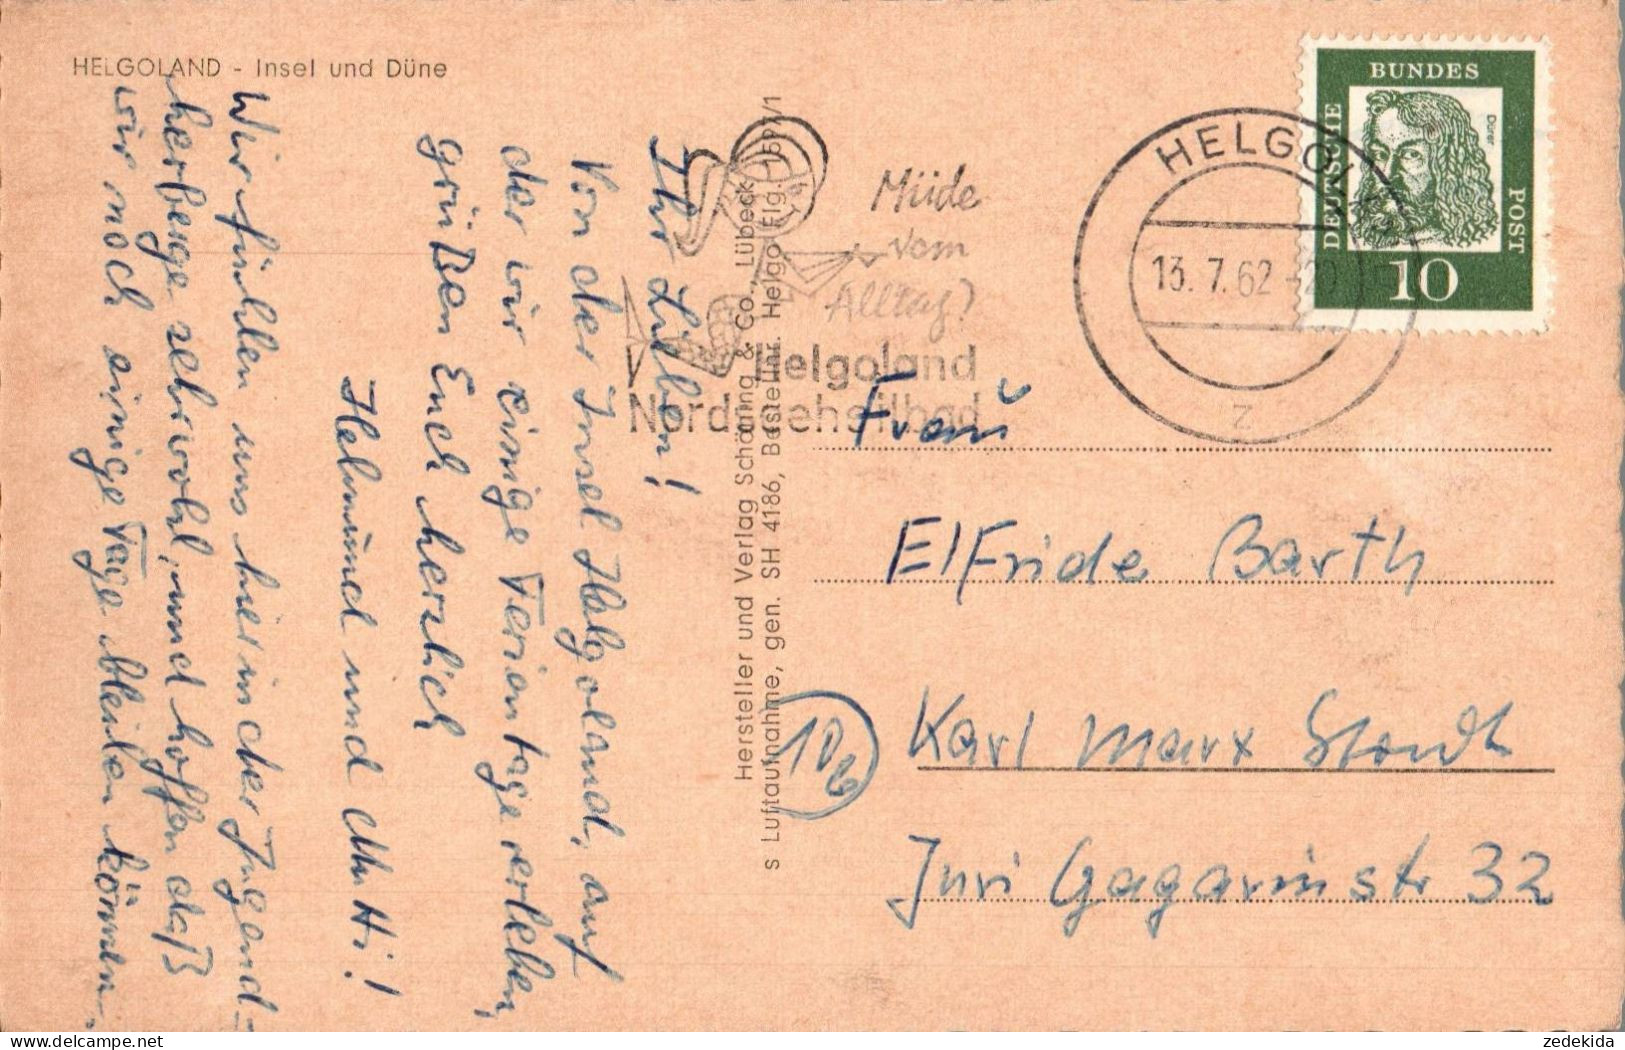 HELGOLAND - Insel und Düne
Ihr Lieben!
Von der Insel Helgoland, auf
der wir einige Ferientage erleben,
grüßen Euch herzlich
Helmund und Mutti!
Wir fühlen uns hier in der Jugend-
herberge sehr wohl, und hoffen daß
wir noch einige Tage bleiben können.
Hersteller und Verlag Schöning & Co., Lübeck
s Luftaufnahme, gen. SH 4186, Bestellnr. Helgo Flg.
Müde
vom
Alltag?
Helgoland
HELGOL
13. 7. 62
z
DEUTSCHE
BUNDES
POST
Dürer
10
Frau
Elfriede Barth
Karl Marx Stadt
Juri Gagarinstr 32
zedekida